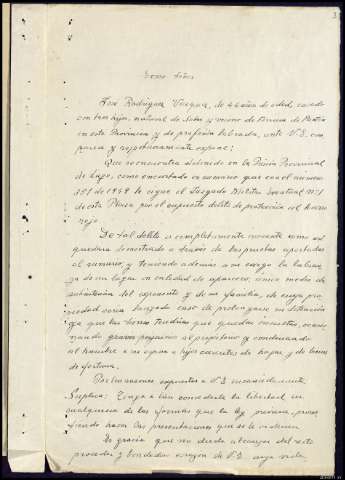 Excmo Señor
José Rodriguez Vazquez, de 46 años de edad, casado
con tres hijos, natural de y vecino de
en esta Provincia y de profesión labrador, ante V.E. com
parece y respetuosamente expone:
Que se encuentra detenido en la Prisión Provincial
de Lugo, como encartado en sumario que con el número
de 1948 le sigue el Juzgado Militar Eventual nº 1
de esta Plaza por el supuesto delito de protección al
rojo.
De tal delito es completamente inocente como así
quedará demostrado a través de las pruebas aportadas
al sumario, y teniendo además a su cargo la labran
za de un lugar en calidad de aparcero, único medio de
subsistencia del exponente y de su familia, de cuya pro
piedad sería lanzado caso de prolongarse su detención
ya que las tierras tendrían que quedar incultas, ocasio
nando graves perjuicios al propietario y condenando
al hambre a su esposa e hijos carentes de hogar y de bienes
de fortuna.
Por las razones expuestas a V.E. encarecidamente
Suplica: Tenga a bien concederle la libertad en
cualquiera de las formas que la ley previene, prome
tiendo hacer las presentaciones que se le ordenen
Es gracia que no duda alcanzar del recto
proceder y bondadoso corazón de V.E. cuya vida